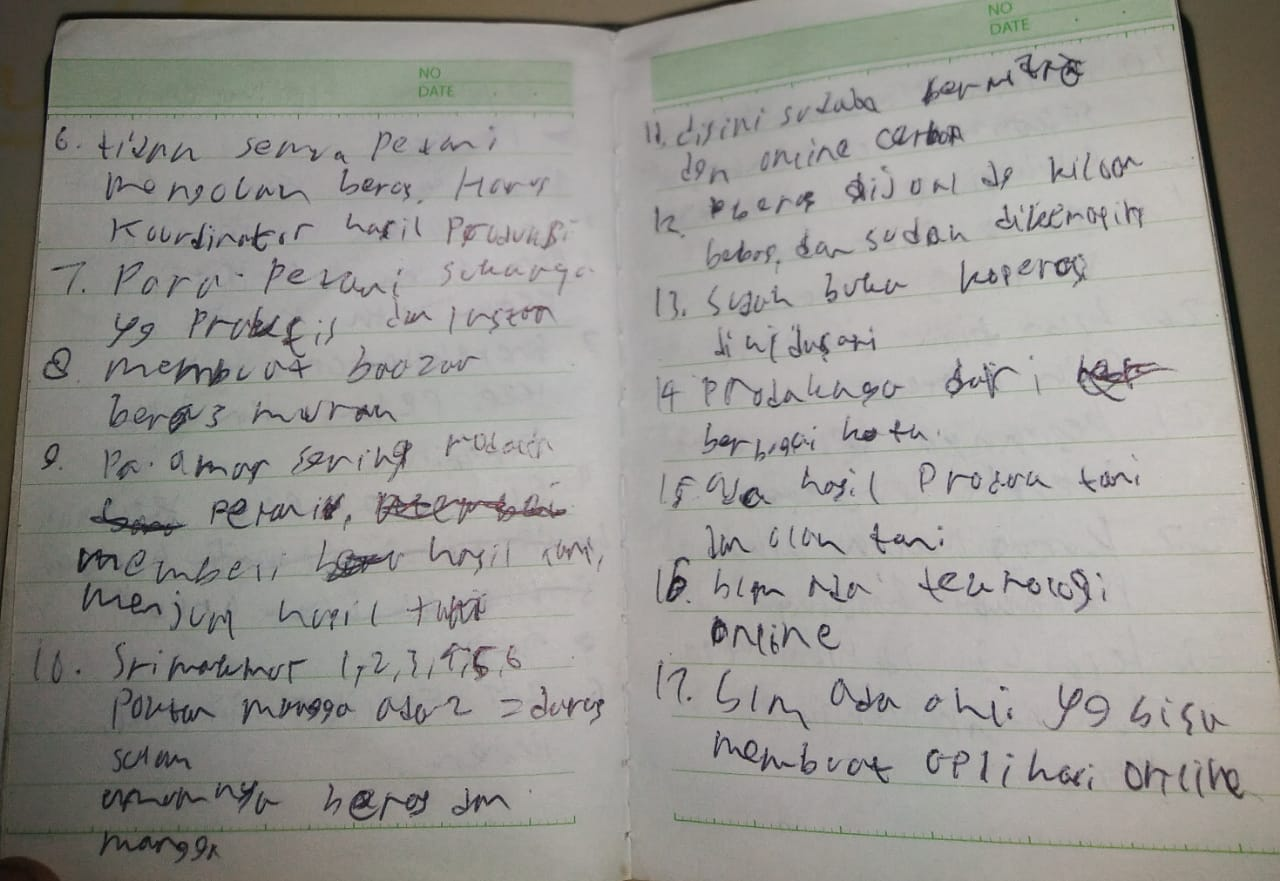 NO
DATE
6. tidak semua Petani
mengolah beras. Harus
Koordinator hasil Produksi
7. Para Petani sukanya
yg Praktis dan instan
8. membuat baazar
beras murah
9. Pa. amar sering
Petani,
membeli hasil tani,
menjual hasil tani
10. Srimakmur 1,2,3,4,5,6
Poktan mangga ada 2 =
umumnya beras dan
mangga
NO
DATE
11. disini sudaba bermitra
dgn online carbon
12. beras dijual dg kiloan
bebas, dan sudah dikemasin
13. Sudah buka koperasi
di
14 Produknya dari
berbagai kota.
15. ada hasil Produk tani
dan olah tani
16. blm ada teknologi
online
17. blm ada ahli yg bisa
membuat aplikasi online